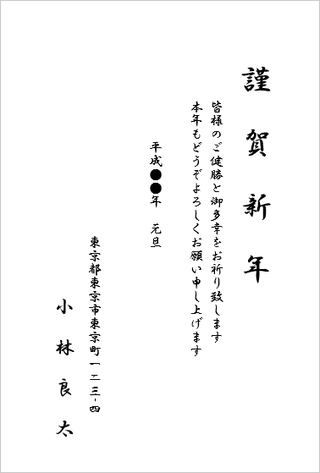 謹賀新年
皆様のご健勝と御多幸をお祈り致します
本年もどうぞよろしくお願い申し上げます
平成●●年　元旦
東京都東京市東京町一二三-四
小林良太